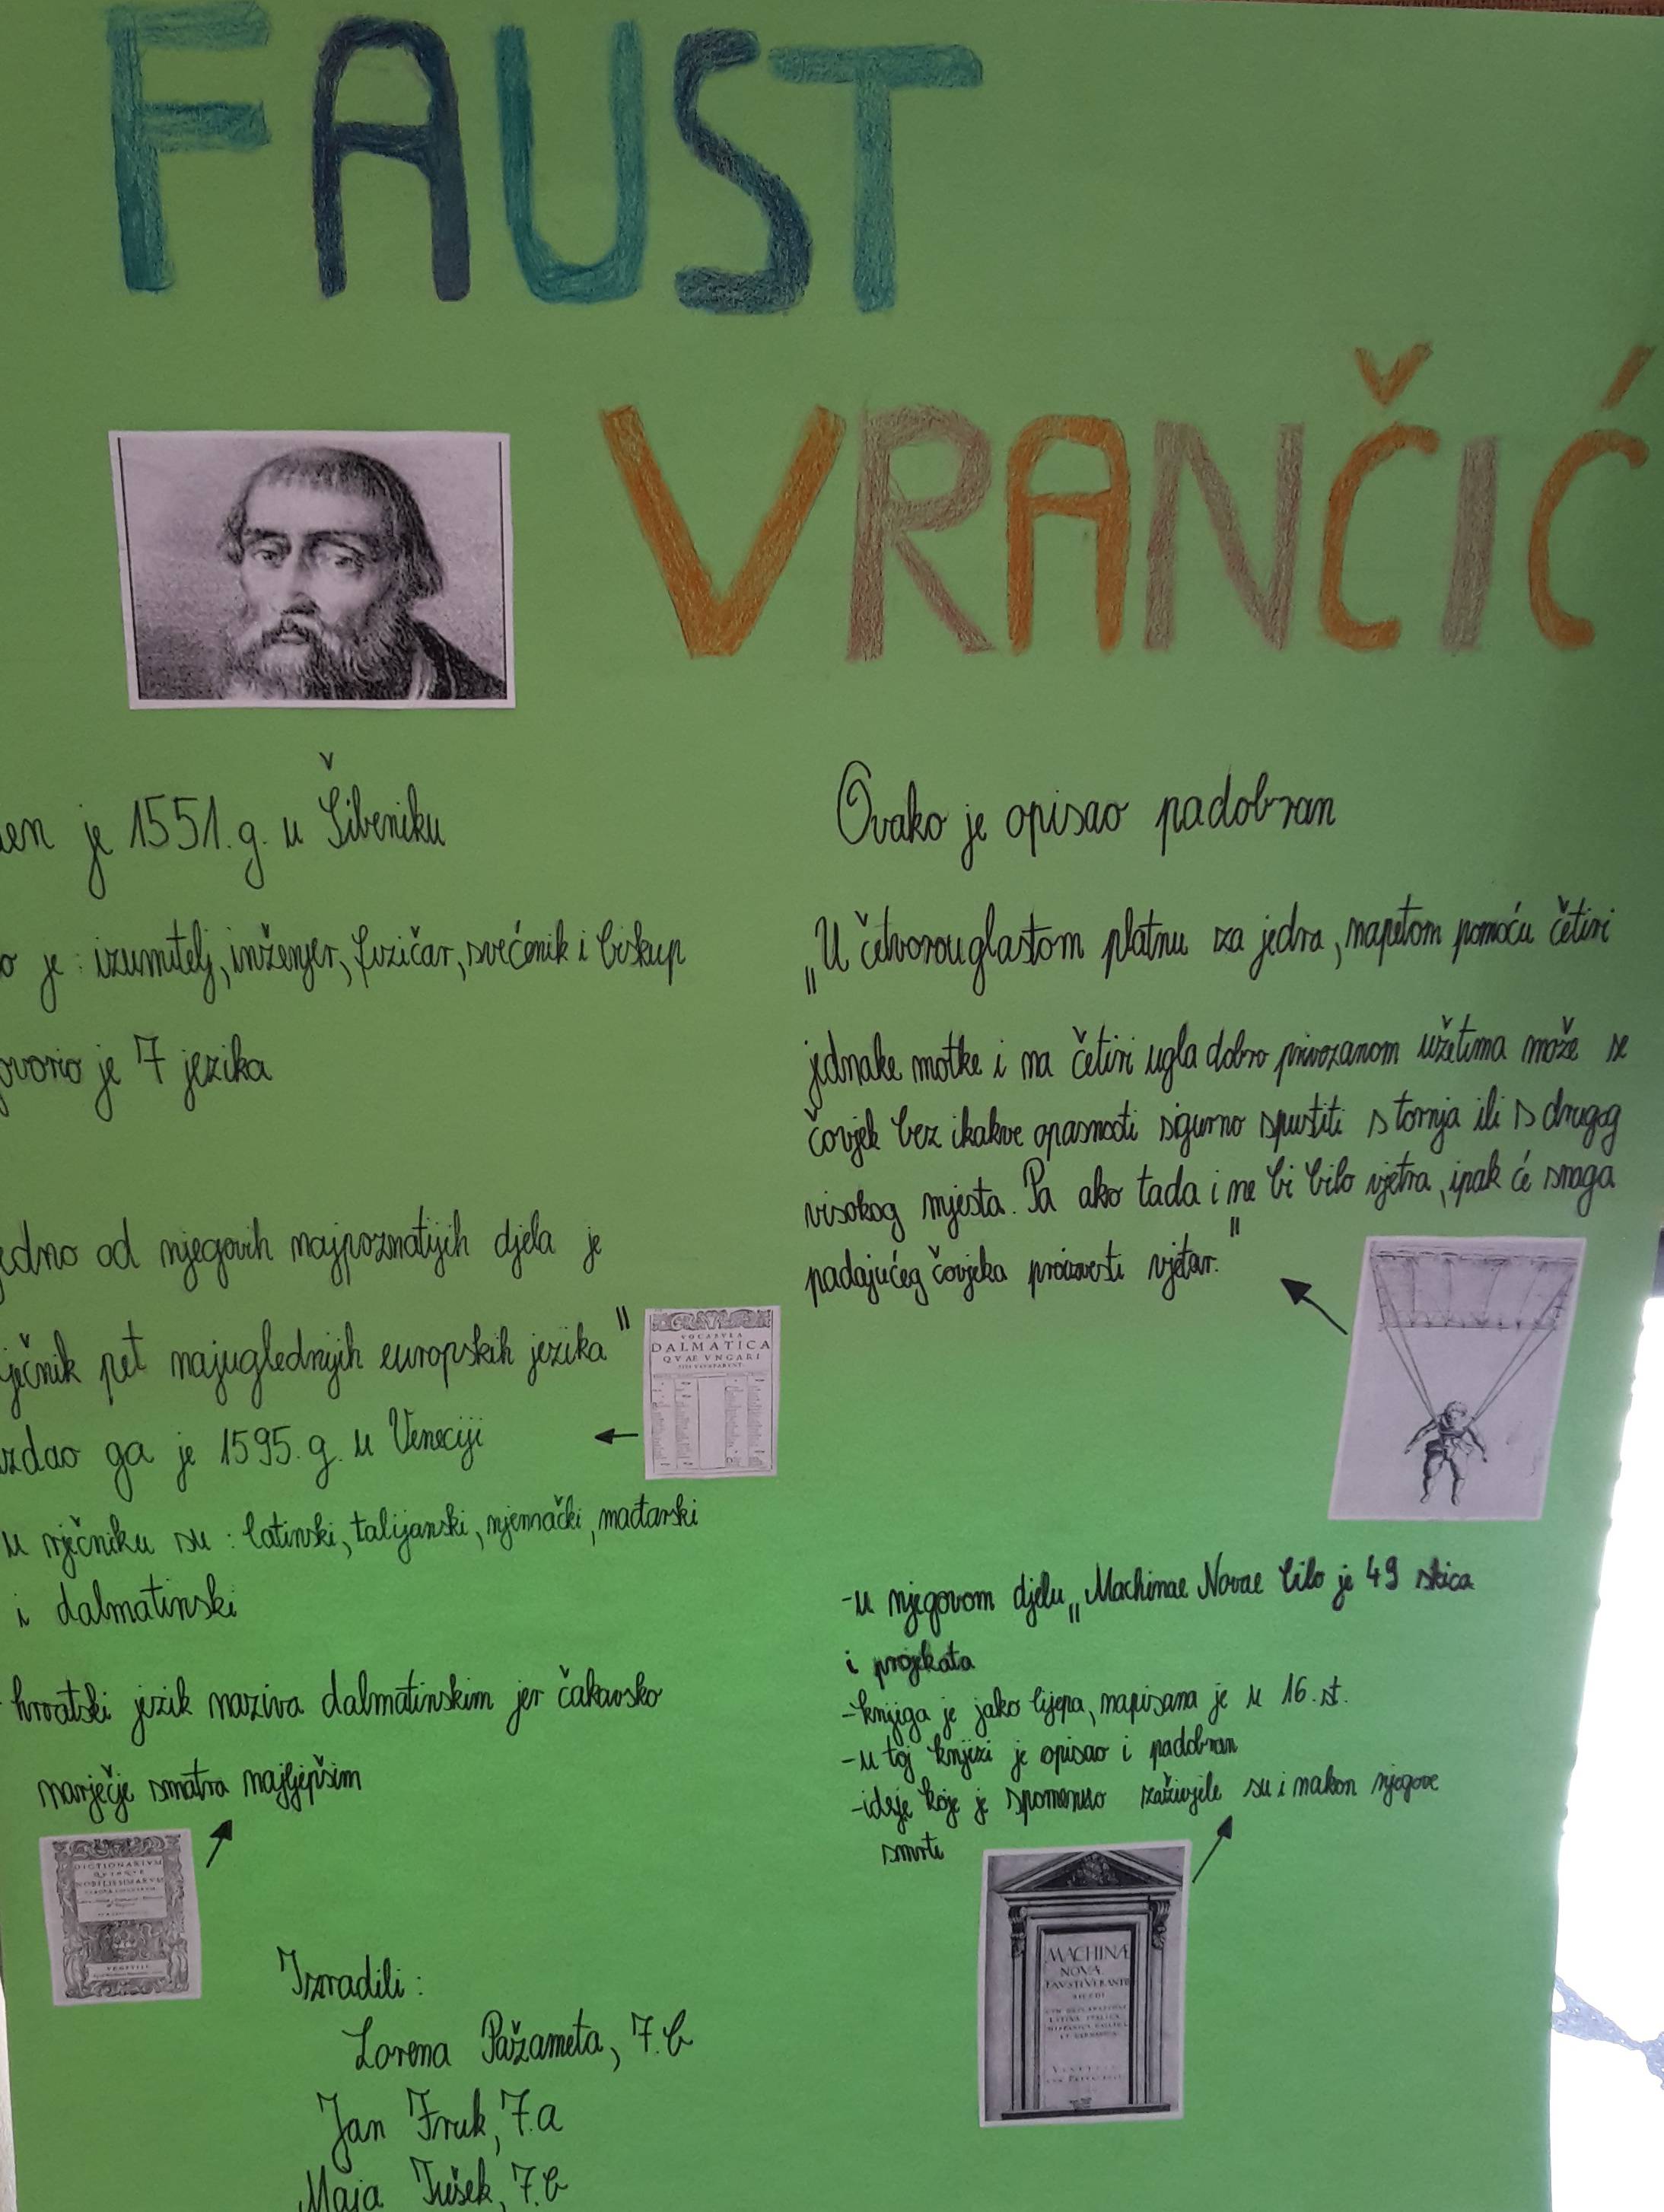 FAUST
VRANČIĆ
en je 1551. g. u Šibeniku
o je : izumitelj, inženjer, fizičar, svećenik i biskup
ovorio je 7 jezika
edno od njegovih najpoznatijih djela je
ječnik pet najuglednijih europskih jezika"
zdao ga je 1595. g. u Veneciji
VOCABVLA
DALMATICA
QVAE VNGARI
u rječniku su : latinski, talijanski, njemački, mađarski
i dalmatinski
hrvatski jezik naziva dalmatinskim jer čakavsko
narječje smatra najljepšim
DICTIONARIVM
QVINQVE
NOBILISSIMARVM
Izradili :
Lorena Pažameta, 7. b
Jan Fruk, 7. a
Maja Tušek, 7. b
Ovako je opisao padobran
„U četvorouglastom platnu za jedra, napetom pomoću četiri
jednake motke i na četiri ugla dobro privezanom užetima može se
čovjek bez ikakve opasnosti sigurno spustiti s tornja ili s drugog
visokog mjesta. Pa ako tada i ne bi bilo vjetra, ipak će snaga
padajućeg čovjeka proizvesti vjetar."
-u njegovom djelu „Machinae Novae bilo je 49 skica
i projekata
-knjiga je jako lijepa, napisana je u 16. st.
-u toj knjizi je opisao i padobran
-ideje koje je spomenuo zaživjele su i nakon njegove
smrti
MACHINÆ
NOVÆ
FAVSTI VERANTII
SICENI